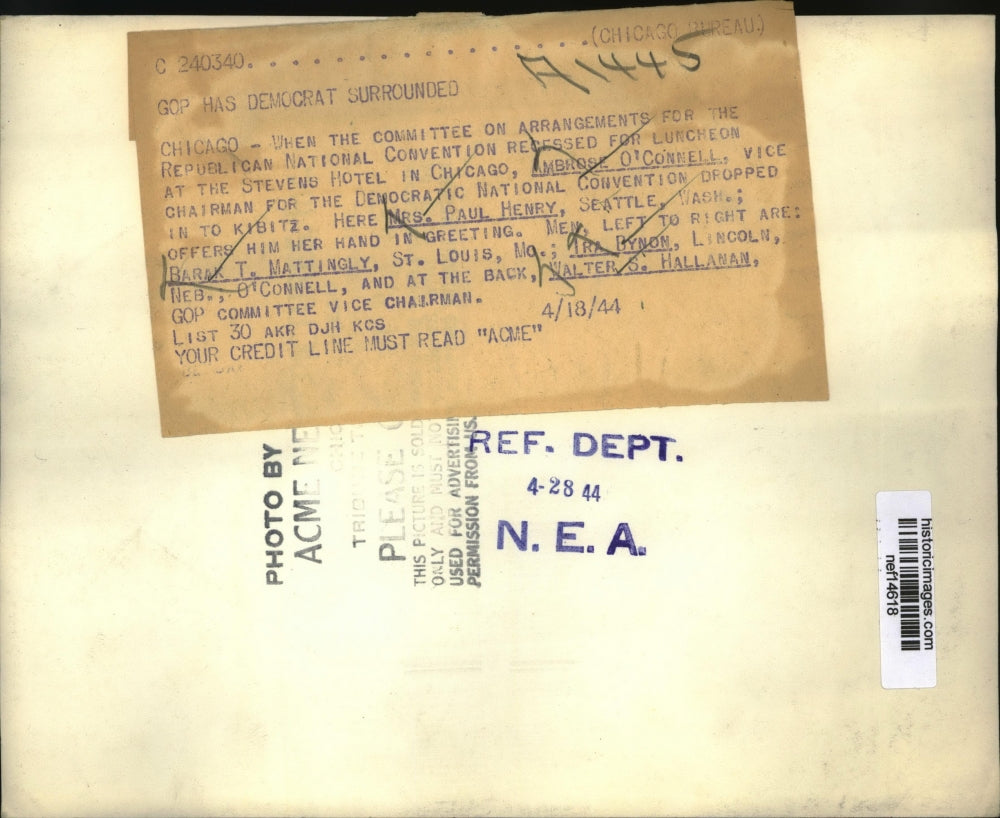 C 240340. . . . . . . . . . . . . . . . . . (CHICAGO BUREAU.)
A1445
GOP HAS DEMOCRAT SURROUNDED
CHICAGO - WHEN THE COMMITTEE ON ARRANGEMENTS FOR THE
REPUBLICAN NATIONAL CONVENTION RECESSED FOR LUNCHEON
AT THE STEVENS HOTEL IN CHICAGO, AMBROSE O'CONNELL, VICE
CHAIRMAN FOR THE DEMOCRATIC NATIONAL CONVENTION DROPPED
IN TO KIBITZ. HERE MRS. PAUL HENRY, SEATTLE, WASH.;
OFFERS HIM HER HAND IN GREETING. MEN, LEFT TO RIGHT ARE:
BARAK T. MATTINGLY, ST. LOUIS, MO.; IRA BYNON, LINCOLN,
NEB., O'CONNELL, AND AT THE BACK, WALTER S. HALLANAN,
GOP COMMITTEE VICE CHAIRMAN.
LIST 30 AKR DJH KCS 4/18/44
YOUR CREDIT LINE MUST READ "ACME"
PHOTO BY
ACME NE
CHIC
PLEASE
THIS PICTURE IS SOLD
ONLY AND MUST NO
USED FOR ADVERTISI
PERMISSION FROM US.
REF. DEPT.
4-28 44
N. E. A.
historicimages.com
nef14618